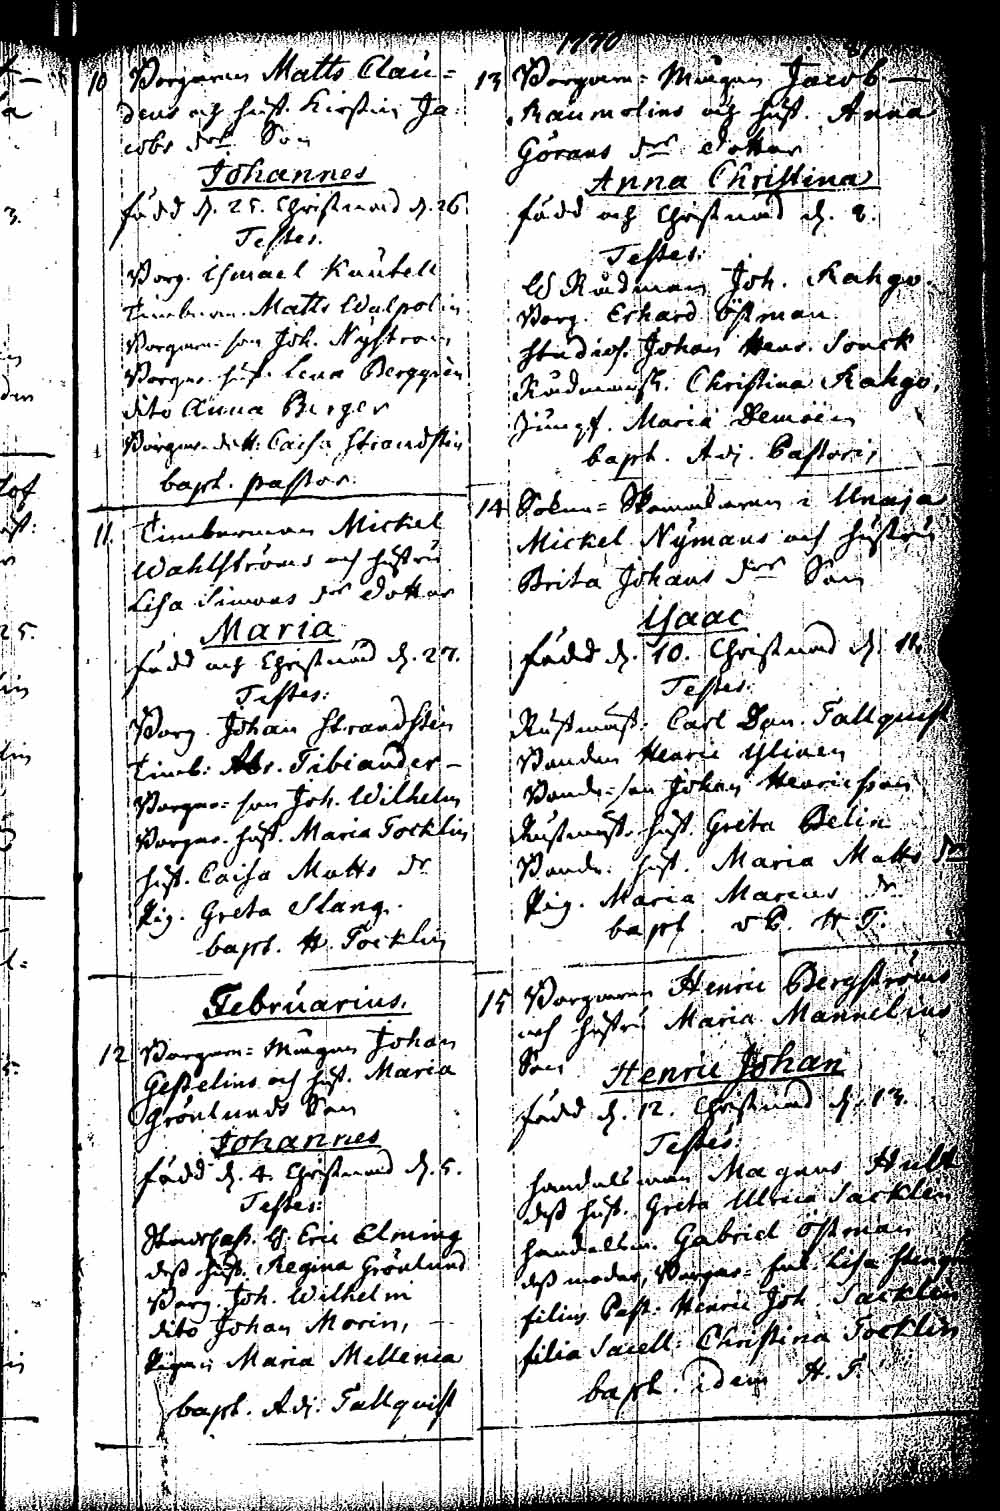 1790
10 Borgaren Matts Clau=
deus och hust. Kirstin Ja
cobs dr Son
Johannes
född d. 25. Christnad d. 26.
Testes.
Borg. Ismael Kautell
Timberm. Matts Walpolin
Borgaren son Joh. Nyström
Borgar. hust. Lena Berggren
dito Anna Berger
Borgar. dott. Caisa Strandstén
bapt. pastor.
11. Timberman Mickel
Wahlströms och hustru
Lisa Simons dr dotter
Maria
född och Christnad d. 27.
Testes:
Borg. Johan Strandstén
Timb: Abr. Tibiander -
Borgar= son Joh. Wilhelm
Borgar. hust. Maria Tocklin
hust. Caisa Matts dr
Pig. Greta Slang.
bapt. H. Tocklin
Februarius.
12 Borgaren= Mågen Johan
Gestelius och hust. Maria
Grönlunds Son
Johannes
född d. 4. Christnad d. 5.
Testes:
H. Eric Elming
dess hust. Regina Grönlund
Borg. Joh. Wilhelm
dito Johan Morin,
Pigan Maria Mellenia
bapt. Adj. Tallquist
13 Borgaren= Mågen Jacob
Raumolins och hust. Anna
Görans dr dotter
Anna Christina
född och Christnad d. 8.
Testes:
H Rådman Joh. Kahgo.
Borg. Erhard Östman
Studios. Johan Henr. Sonck
Rådmansk. Christina Kahgo,
Jungf. Maria Demoén
bapt. Adj. Pastoris
14 Sokne= Skomakaren i Unaja
Mickel Nymans och hustru
Brita Johans dr Son
Isaac
född d. 10. Christnad d. 11.
Testes:
Rustmäst. Carl Dan. Tallquist
Bonden Henric Ylinen
Bonde= son Johan Henricsson
Rustmäst. hust. Greta Belin
Bonde. hust. Maria Matts dr
Pig. Maria Marcus dr
bapt. v P. H T:
15 Borgaren Henric Bergströms
och hustru Maria Mannelius
Son
Henric Johan
född d. 12. Christnad d. 13.
Testes.
handelsman Magnus Hult
dess hust. Greta Ulrica Sacklén
handelsm. Gabriel Östman
dess moder, Borgar= Lisa
filius Past. Henric Joh. Sacklén
filia Sacell: Christina Tocklin
bapt. idem H. T.